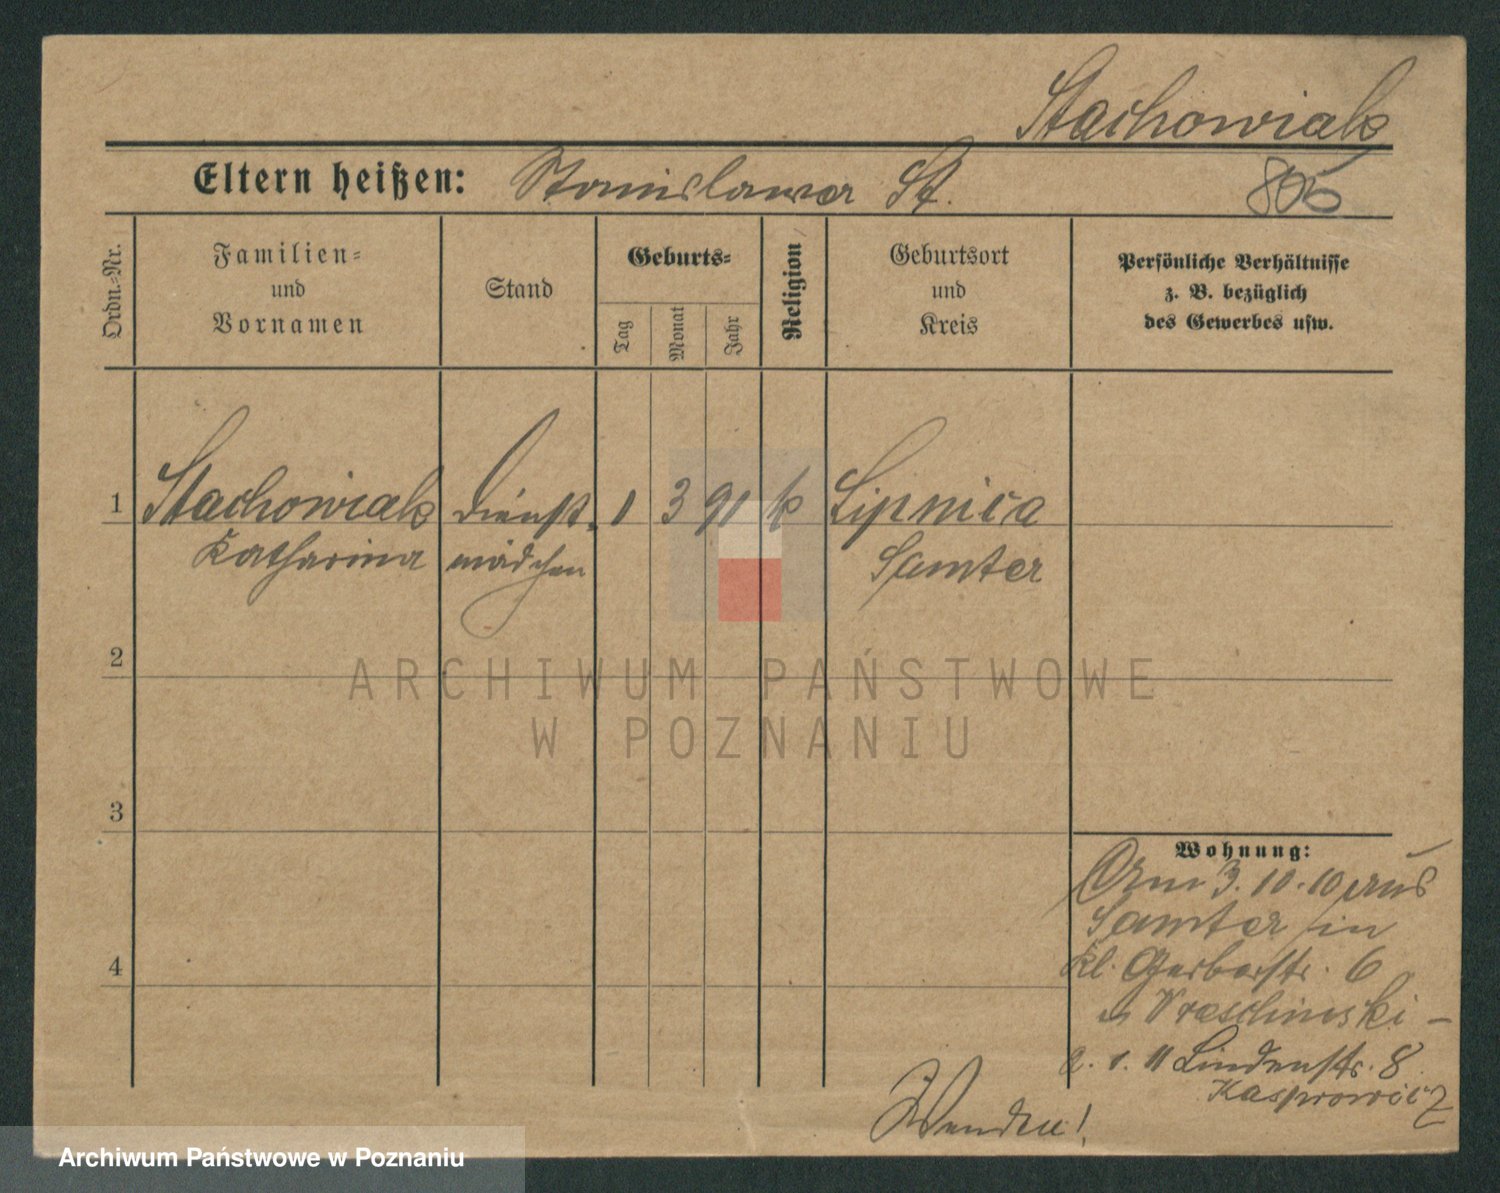 Stachowiak
Eltern heißen: Stanislawa St.
805
Ordn.-Nr.
Familien-
und
Vornamen
Stand
Geburts-
Tag
Monat
Jahr
Religion
Geburtsort
und
Kreis
Persönliche Verhältnisse
z. B. bezüglich
des Gewerbes usw.
1 Stachowiak Dienst- 1 3 91 k Lipnica
Katharina mädchen Samter
2
ARCHIWUM PAŃSTWOWE
W POZNANIU
3
4
Wohnung:
3. 10. 10 aus
Samter in
kl. Gerberstr. 6
2. 1. 11 Lindenstr. 8
Kasprowicz
Wenden!
Archiwum Państwowe w Poznaniu